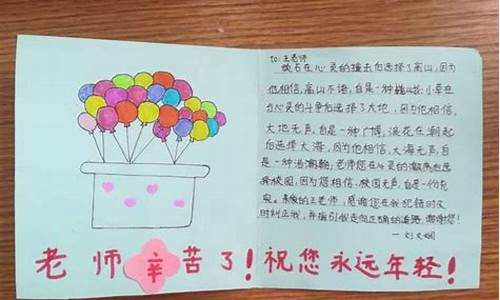 to:王老师
岩石在心灵的撞击后选择了高山,因为
他相信,高山不语,自是一种巍峨;小草在
为心灵的斗争后选择了大地,因为他相信,
大地无声,自是一种广博;浪花在潮起
后选择大海,因为他相信,大海无声,自
是一种浩瀚;老师您在心灵的潮满后选
择校园,因为您相信,校园无声,自是一份充
实。亲爱的王老师,感谢您在我犯错时及
时纠正我,并指引我走向正确的道路,谢谢您!
老师辛苦了!祝您永远年轻!